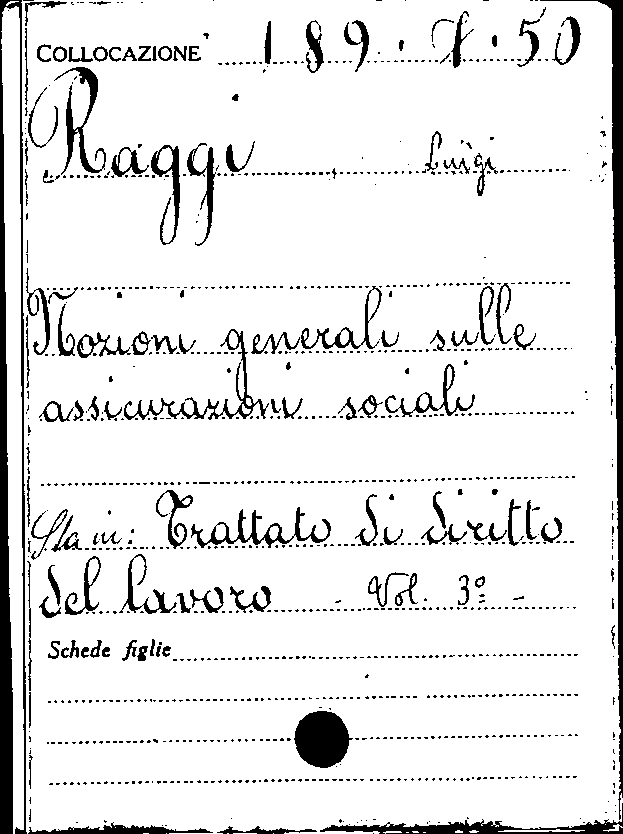 COLLOCAZIONE 189.I.50
Raggi Luigi
Nozioni generali sulle
assicurazioni sociali
Sta in: Trattato di diritto
del lavoro - Vol. 3º -
Schede figlie